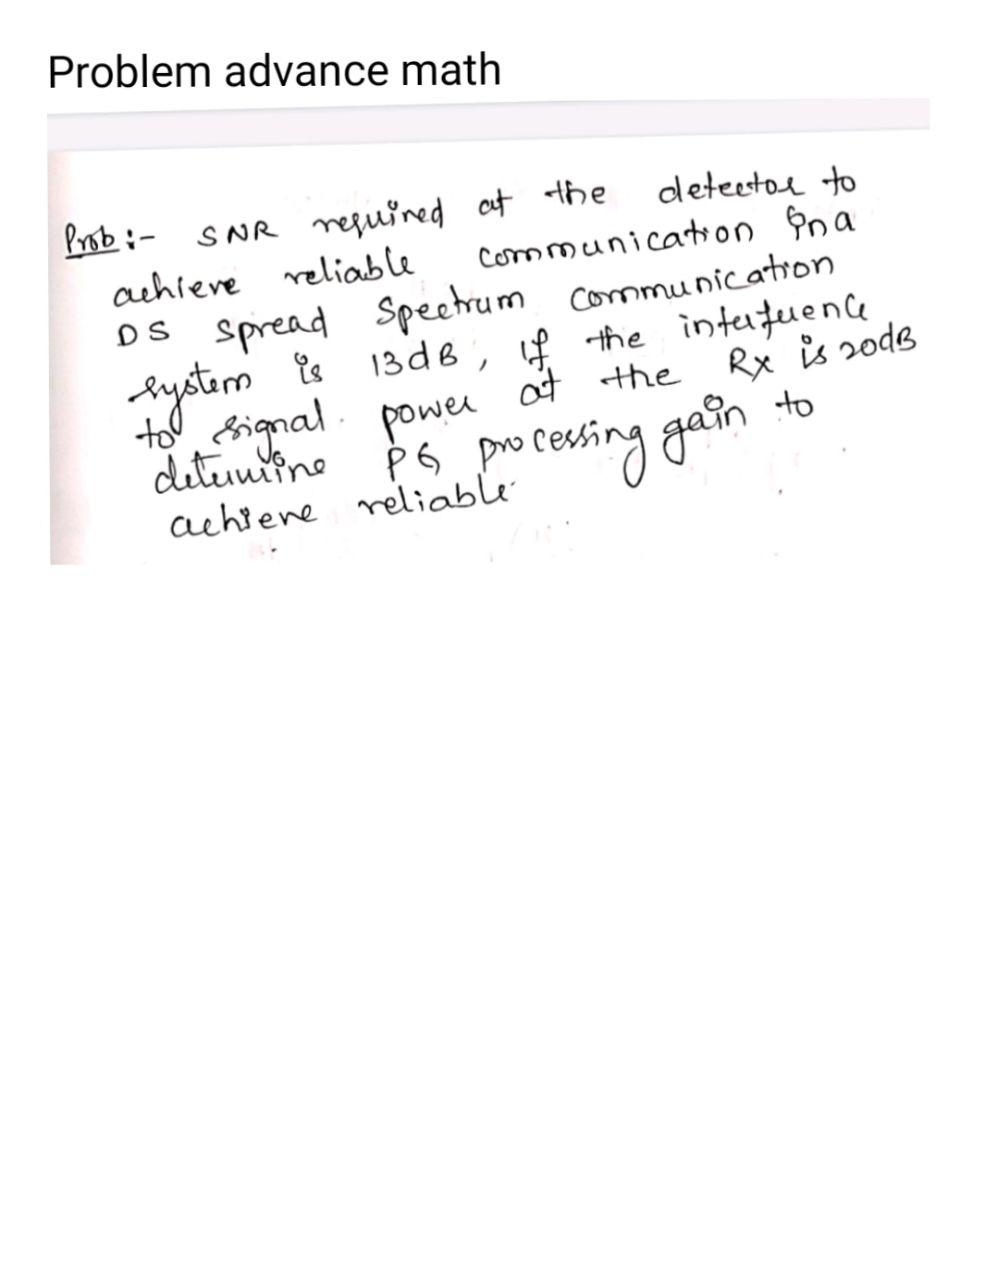 Problem advance math
Prob :- SNR required at the detector to
achieve reliable communication in a
DS spread spectrum communication
system is 13dB, if the interference
to signal power at the Rx is 20dB
determine PG processing gain to
achieve reliable.